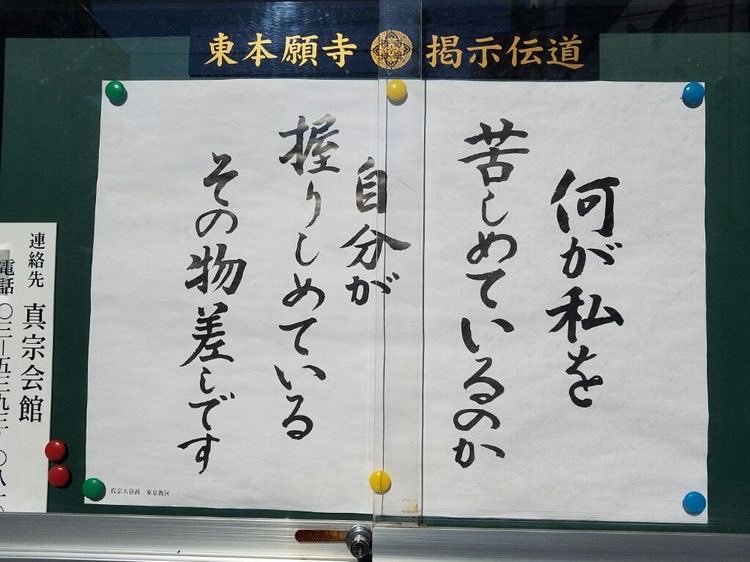 東本願寺 掲示伝道
何が私を
苦しめているのか
自分が
握りしめている
その物差しです
連絡先 真宗会館
電話 〇三―五三九三
真宗大谷派 東京教区